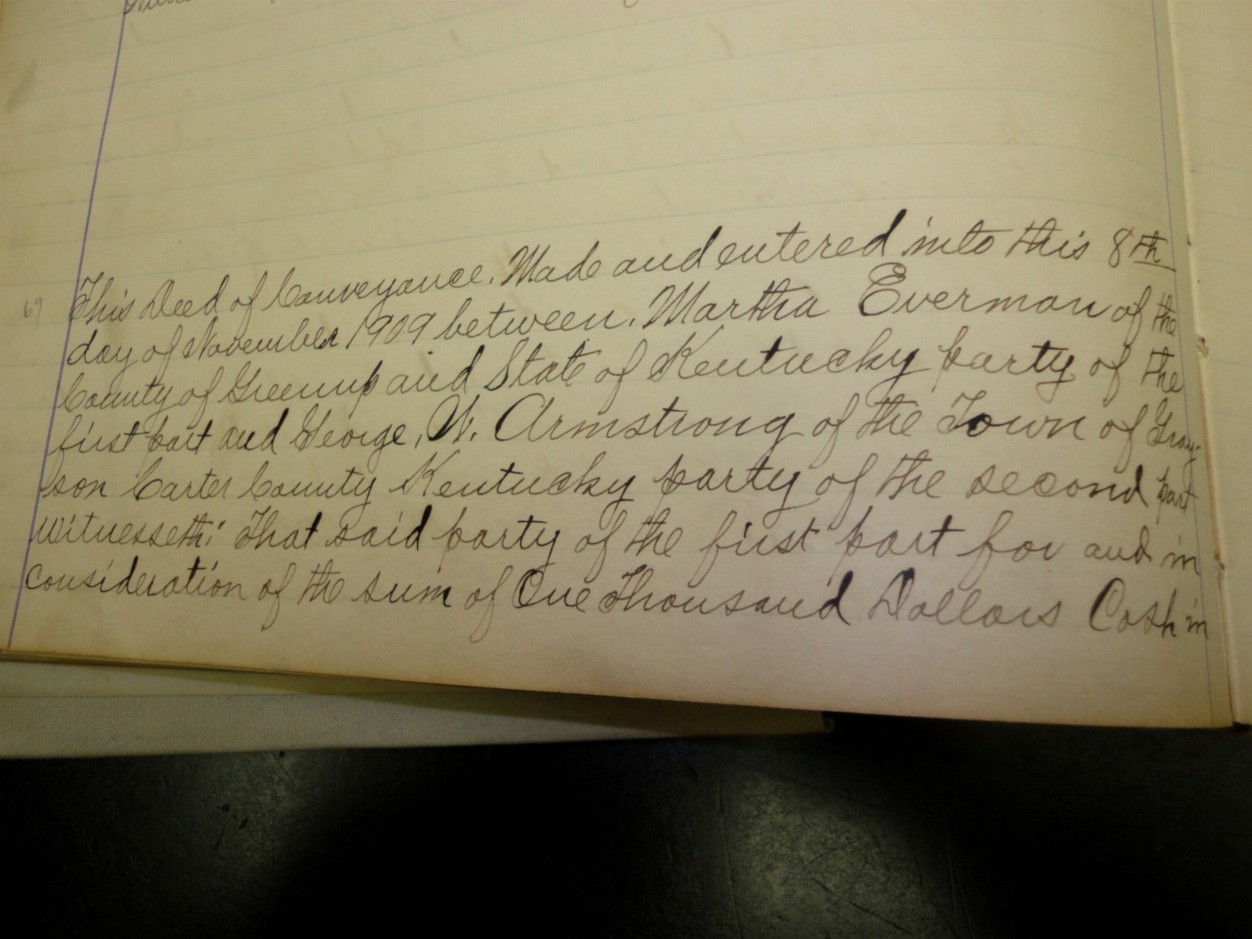 This Deed of Conveyance. Made and entered into this 8th
day of November 1909 between. Martha Everman of the
County of Greenup and State of Kentucky party of the
first part and George. W. Armstrong of the Town of Gray-
son Carter County Kentucky party of the second part
witnesseth: That said party of the first part for and in
consideration of the sum of One Thousand Dollars Cash in